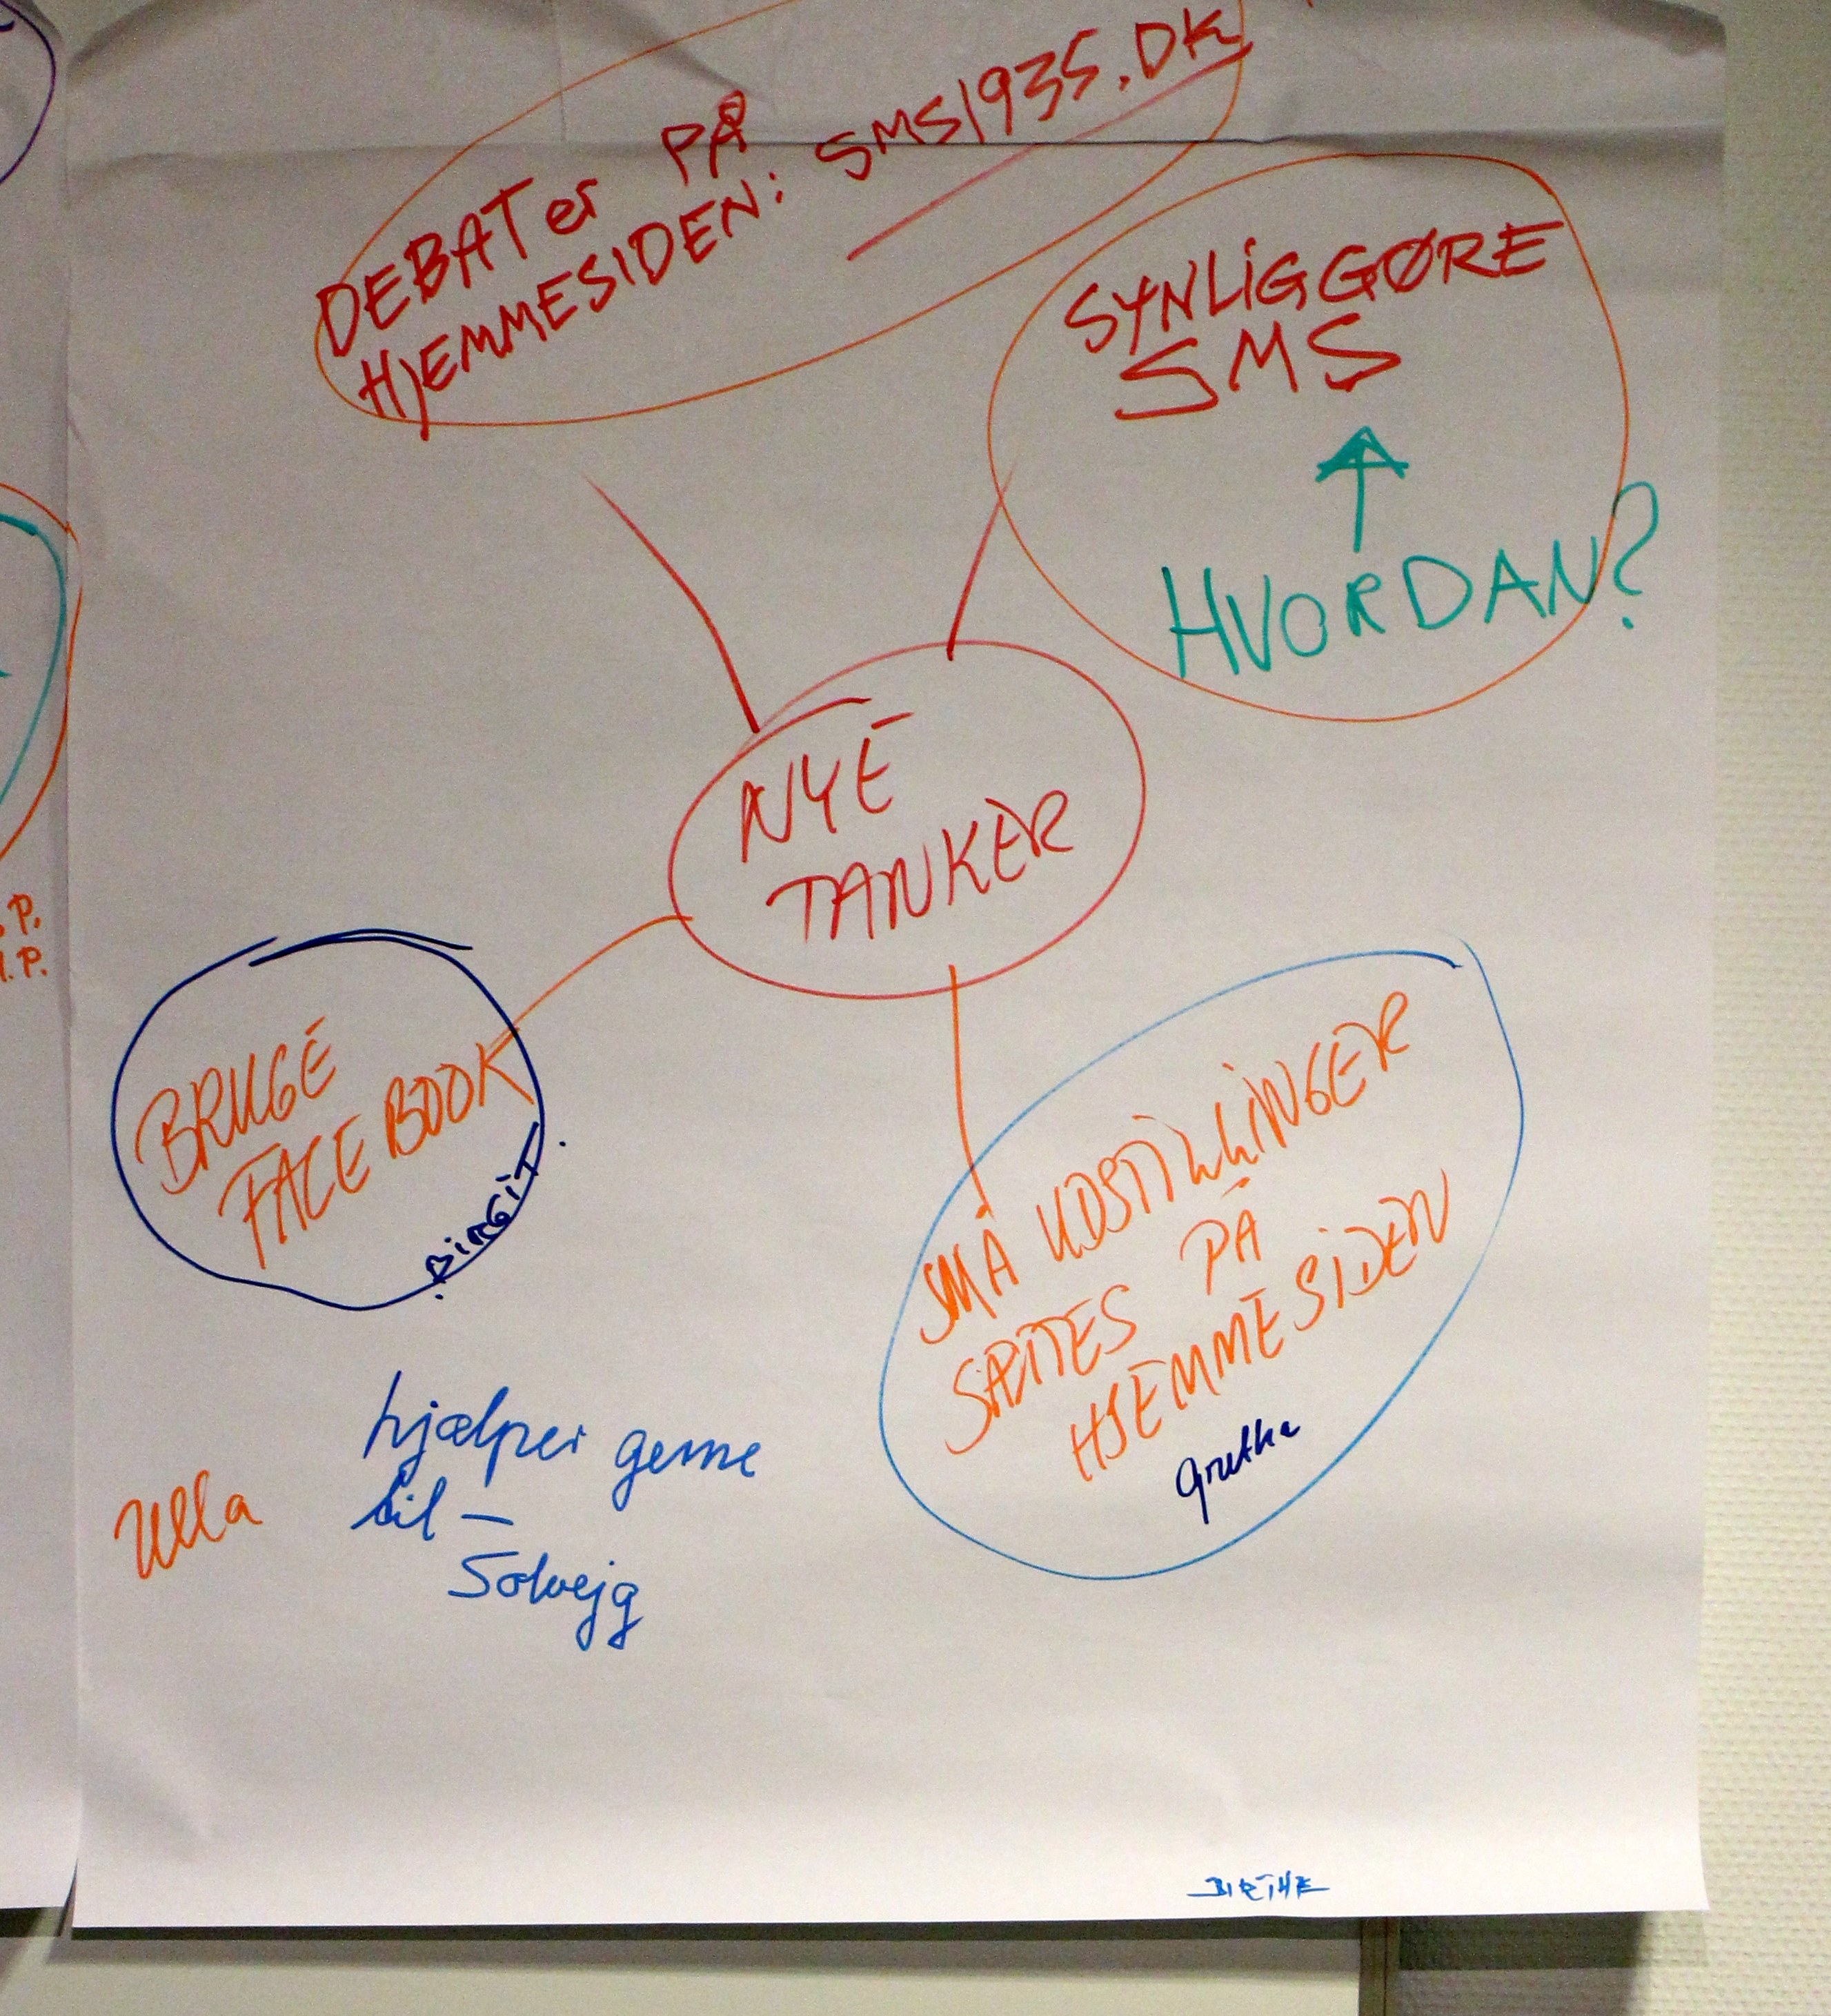 DEBATer PÅ
HJEMMESIDEN: SMS1935.DK
SYNLIGGØRE
SMS
HVORDAN?
NYE
TANKER
BRUGE
FACEBOOK
BIRGIT
SMÅ UDSTILLINGER
SÆTTES PÅ
HJEMMESIDEN
Grethe
Ulla
hjælper gerne
til —
Solvejg
BIRTHE
P.
I.P.